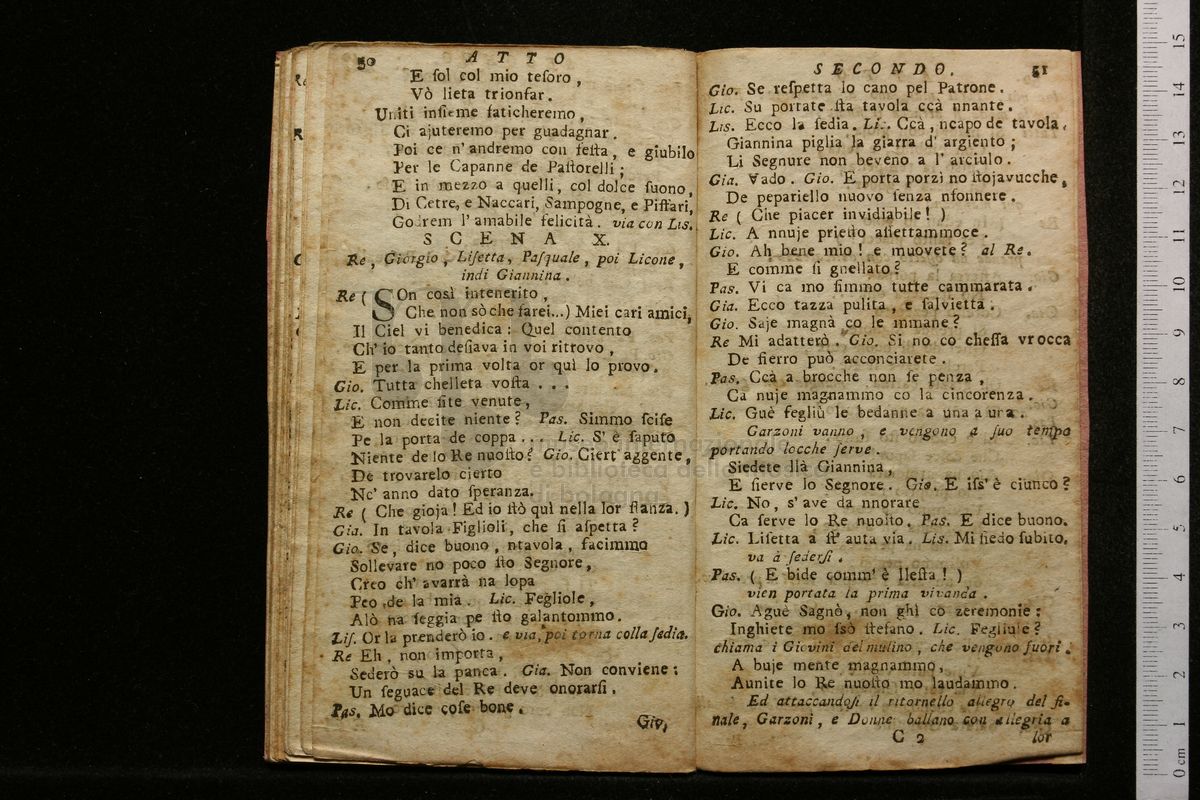 50 ATTO
E ſol col mio teſoro,
Vò lieta trionfar.
Uniti inſieme faticheremo,
Ci ajuteremo per guadagnar.
Poi ce n' andremo con feſta, e giubilo
Per le Capanne de Paſtorelli;
E in mezzo a quelli, col dolce ſuono,
Di Cetre, e Naccari, Sampogne, e Piffari,
Godrem l' amabile felicità. via con Lis.
SCENA X.
Re, Giorgio, Liſetta, Paſquale, poi Licone,
indi Giannina.
Re ( SOn così intenerito,
Che non sò che farei...) Miei cari amici,
Il Ciel vi benedica: Quel contento
Ch' io tanto deſiava in voi ritrovo,
E per la prima volta or quì lo provo.
Gio. Tutta chelleta voſta . . .
Lic. Comme ſite venute,
E non decite niente? Pas. Simmo ſciſe
Pe la porta de coppa ... Lic. S' è ſaputo
Niente de lo Re nuoſto? Gio. Ciert' aggente,
De trovarelo cierto
Nc' anno dato ſperanza.
Re ( Che gioja! Ed io ſtò quì nella lor ſtanza. )
Gia. In tavola Figlioli, che ſi aſpetta?
Gio. Se, dice buono, ntavola, facimmo
Sollevare no poco ſto Segnore,
Creo ch' avarrà na lopa
Peo de la mia. Lic. Fegliole,
Alò na ſeggia pe ſto galantommo.
Liſ. Or la prenderò io. e via, poi torna colla ſedia.
Re Eh, non importa,
Sederò su la panca. Gia. Non conviene:
Un ſeguace del Re deve onorarſi.
Pas. Mo dice coſe bone.
Gio,
SECONDO. 51
Gio. Se reſpetta lo cano pel Patrone.
Lic. Su portate ſta tavola ccà nnante.
Lis. Ecco la ſedia. Lic. Ccà, ncapo de tavola,
Giannina piglia la giarra d' argiento;
Li Segnure non beveno a l' arciulo.
Gia. Vado. Gio. E porta porzì no ſtojavucche,
De pepariello nuovo ſenza nfonnere.
Re ( Che piacer invidiabile! )
Lic. A nnuje prieſto aſſettammoce.
Gio. Ah bene mio! e muovete? al Re.
E comme ſi gnellato?
Pas. Vi ca mo ſimmo tutte cammarata.
Gia. Ecco tazza pulita, e ſalvietta.
Gio. Saje magnà co le mmane?
Re Mi adatterò. Gio. Si no co cheſſa vrocca
De fierro può acconciarete.
Pas. Ccà a brocche non ſe penza,
Ca nuje magnammo co la cincorenza.
Lic. Guè fegliù le bedanne a una a una.
Garzoni vanno, e vengono a ſuo tempo
portando locche ſerve.
Siedete llà Giannina,
E ſierve lo Segnore. Gio. E iſs' è ciunco?
Lic. No, s' ave da nnorare
Ca ſerve lo Re nuoſto. Pas. E dice buono.
Lic. Liſetta a ſt' auta via. Lis. Mi ſiedo ſubito.
va à ſederſi.
Pas. ( E bide comm' è lleſta! )
vien portata la prima vivanda.
Gio. Aguè Sagnò, non ghì co zeremonie:
Inghiete mo ſsò ſtefano. Lic. Fegliule?
chiama i Giovini del mulino, che vengono fuori.
A buje mente magnammo,
Aunite lo Re nuoſto mo laudammo.
Ed attaccandoſi il ritornello allegro del fi-
nale, Garzoni, e Donne ballano con allegria a
C 2 lor